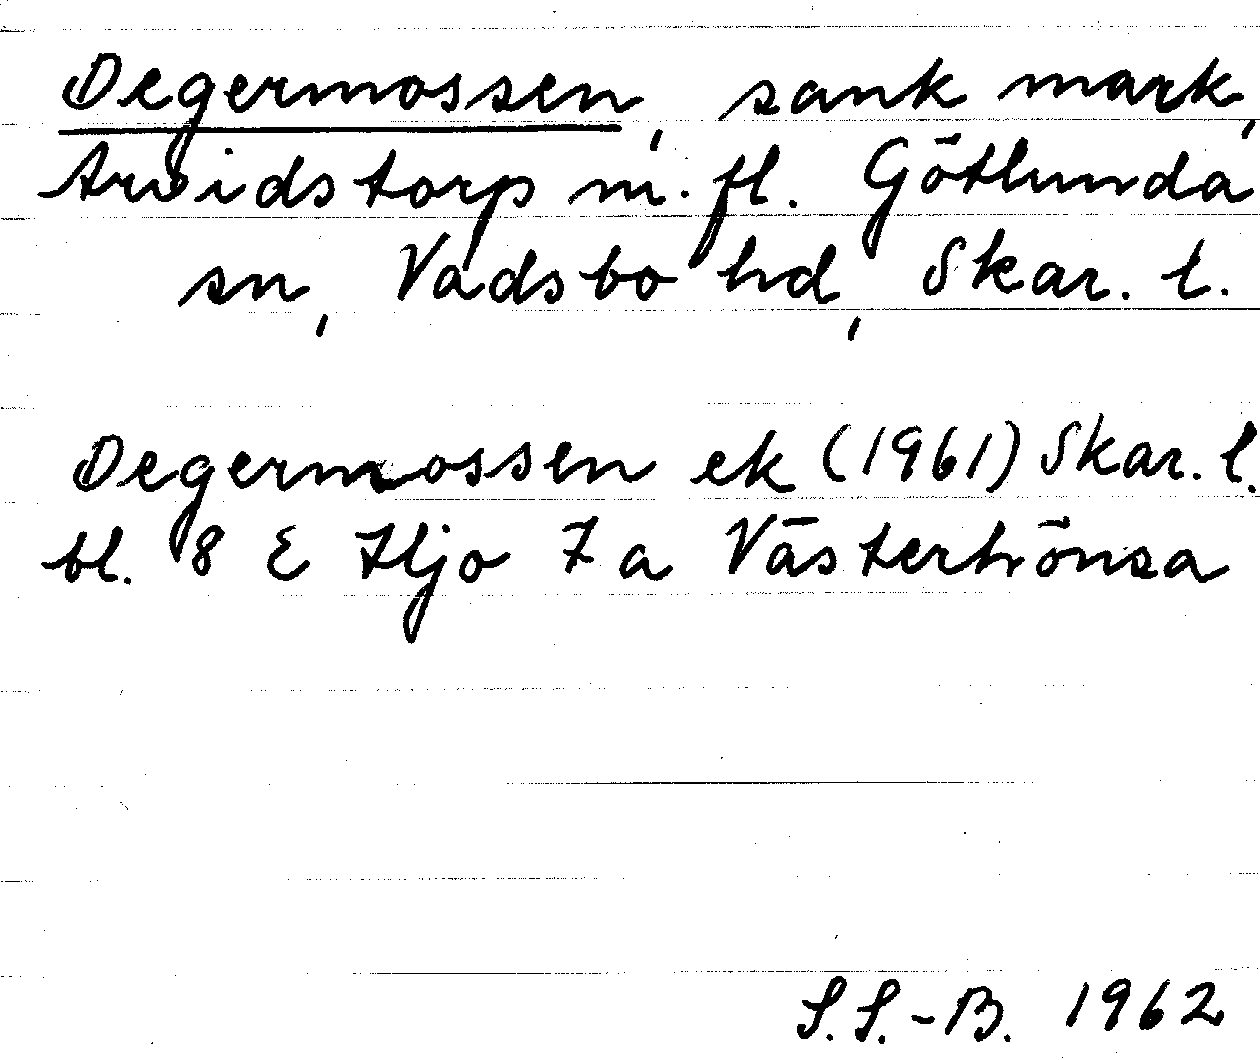 Degermossen, sank mark,
Arvidstorp m. fl. Götlunda
sn, Vadsbo hd, Skar. l.
Degermossen ek (1961) Skar. l.
bl. 8 E Hjo 7 a Västerhönsa
S.S.-B. 1962